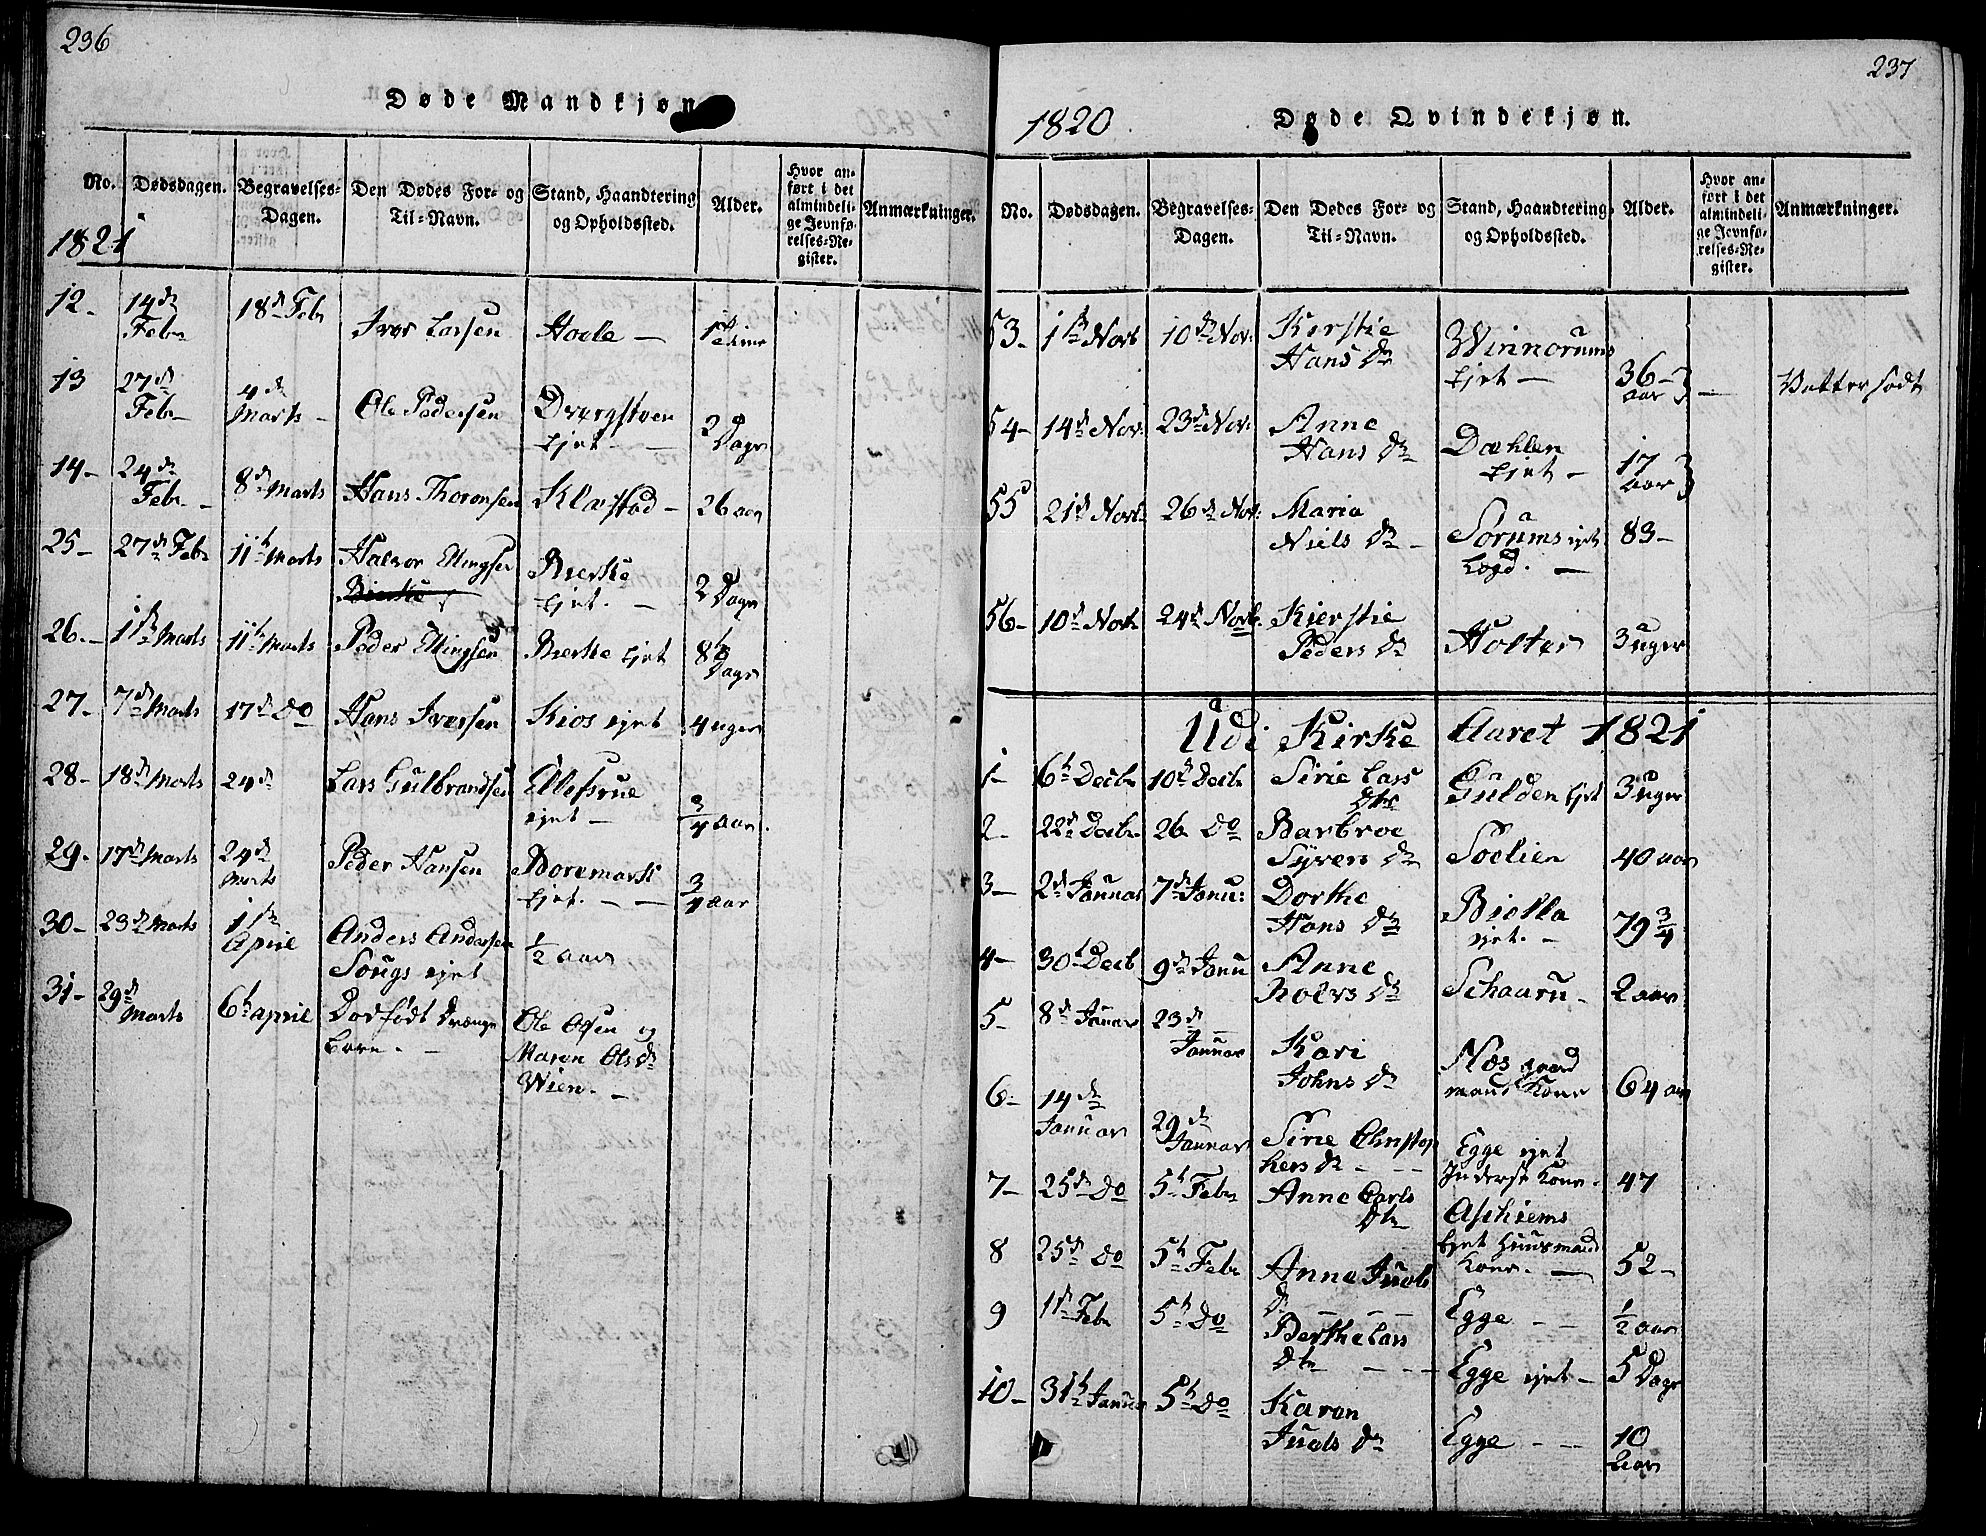 236
Døde Mandkjøn
No. Dødsdagen. Begravelses-Dagen. Den Dødes For- og Til-Navn. Stand, Haandtering og Opholdssted. Alder. Hvor anført i det almindelige Jevnførelses-Register. Anmærkninger.
1821
12. 14de Febr 18de Febr Iver Larsen Hoele — 1
13 27de Febr 4de Marts Ole Pedersen Dvergstøen Ejet — 2 Dage
14 – 24de Febr – 8de Marts Hans Thoronsen Klæstad – 26 aar
25 – 27de Febr 11th Marts Halvor Ellingsen Bierke Ejet. — 2 Dage
26. – 1ste Marts 11th Marts Peder Ellingsen Bierke Ejet 8th Dage
27. 7de Marts 17de Do Hans Iversen Kios ejet 4 uger
28 – 18de Marts 24de Lars Gulbrandsen Ellefsrue ejet — 3/4 aar.
29. 17de Marts 24de Marts Peder Hansen Boremark Ejet. — 3/4 aar
30 – 23de Marts 1ste April Anders Andersen Sougs ejet 1/2 aar
31 – 29de Marts 6th april Dødfødt Drænge barn. — Ole Olsen og Maren Olsdr Wien. —
237
1820
Døde Qvindekjøn.
No. Dødsdagen. Begravelses-Dagen. Den Dødes For- og Til-Navn. Stand, Haandtering og Opholdssted. Alder. Hvor anført i det almindelige Jevnførelses-Register. Anmærkninger.
53 – 1ste Novb 10de Nov: Kerstie Hans Dr Winnorums Ejet — 36 – aar — Vattersodt
54 – 14de Nov: 23de Nov: Anne Hans Dr Dæhlen Ejet — 17 aar
55 21de Novb: 26de Nov: Maria Niels Dr – Sørums ejet Lægd. — 83 –
56 – 10de Novb. 24de Novb. Kierstie Peders Dr Holter 3 uger
Udi Kirke Aaret 1821
1 – 6th Decb 10de Decb Sirie Lars Dtr Gulden Ejet 3 uger
2 – 22de Decb 26 Do Barbroe Syvers Dr Soelien 40 aar
3 – 2de Januar 7de Janu: Dorthe Hans Dr Biella ejet. – 79 3/4
4 – 30th Decb 9de Janu Anne Rolvs Dr Schaaru – 2 aar
5 – 8de Januar 23de Januar Kari Johns Dr Næs gaard mands Kone 64 aar
6 – 14de Januar 29de Januar Sirie Christophers Dr – Egge ejet Inderst Kone. 47
7 – 25de Do 5th Febr Anne Carls Dtr Aschiems Ejet Huusmands Kone. — 52 –
8 25de Do 5th Febr Anne Juels Dr — Egge — 1/2 aar
9 1ste Febr 5th Do Berthe Lars Dtr — Egge ejet – 5 Dage
10 – 31th Januar 5th Do Karen Juels Dr Egge — 10 aar